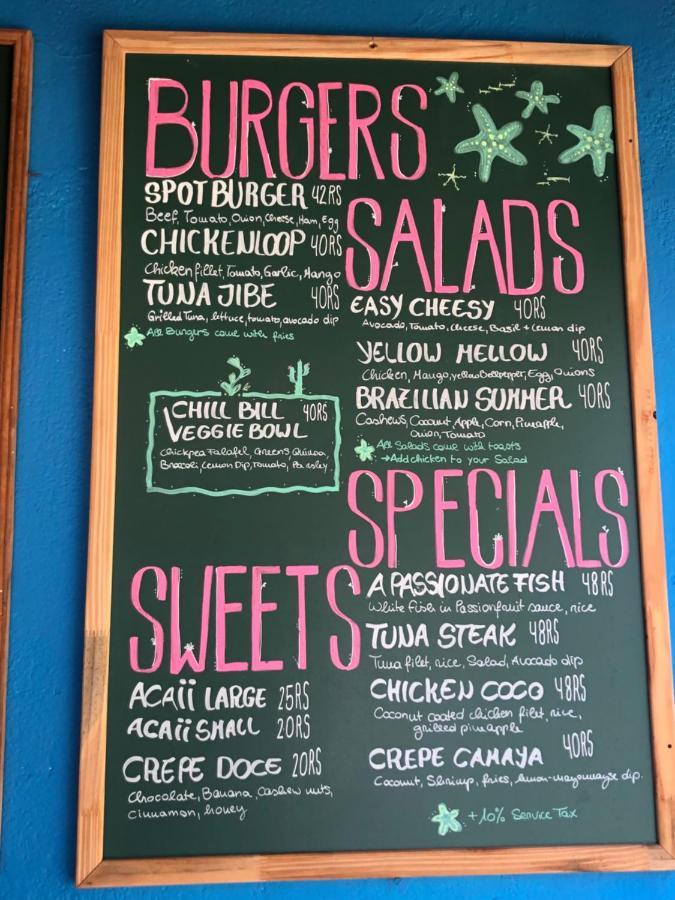 BURGERS
SPOT BURGER 42RS
Beef, Tomato, Onion, Cheese, Ham, Egg
CHICKENLOOP 40RS
Chicken fillet, Tomato, Garlic, Mango
TUNA JIBE 40RS
Grilled Tuna, lettuce, tomato, avocado dip
All Burgers come with fries
CHILL BILL 40RS
VEGGIE BOWL
Chickpea Falafel, Greens, Quinoa,
Broccoli, Lemon Dip, Tomato, Parsley
SALADS
EASY CHEESY 40RS
Avocado, Tomato, Cheese, Basil + Lemon dip
YELLOW MELLOW 40RS
Chicken, Mango, yellow Bellpepper, Egg, Onions
BRAZILIAN SUMMER 40RS
Cashews, Coconut, Apple, Corn, Pineapple,
Onion, Tomato
All Salads come with toasts
→ Add chicken to your Salad
SPECIALS
A PASSIONATE FISH 48RS
White fish in Passionfruit sauce, rice
TUNA STEAK 48RS
Tuna filet, rice, Salad, Avocado dip
CHICKEN COCO 48RS
Coconut coated chicken filet, rice,
grilled pineapple
CREPE CAMAYA 40RS
Coconut, Shrimp, fries, lemon-mayonnayse dip.
+10% Service Tax
SWEETS
ACAíí LARGE 25RS
ACAíí SMALL 20RS
CREPE DOCE 20RS
Chocolate, Banana, Cashew nuts,
cinnamon, honey